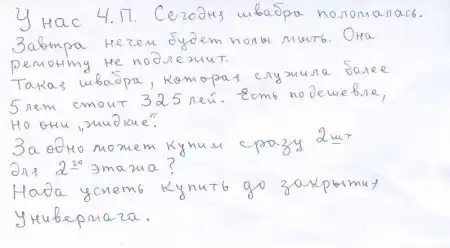 У нас Ч.П. Сегодня швабра поломалась.
Завтра нечем будет полы мыть. Она
ремонту не подлежит.
Такая швабра, которая служила более
5 лет стоит 325 лей. Есть подешевле,
но они „жидкие".
За одно может купим сразу 2 шт
для 2го этажа?
Надо успеть купить до закрытия
Универмага.